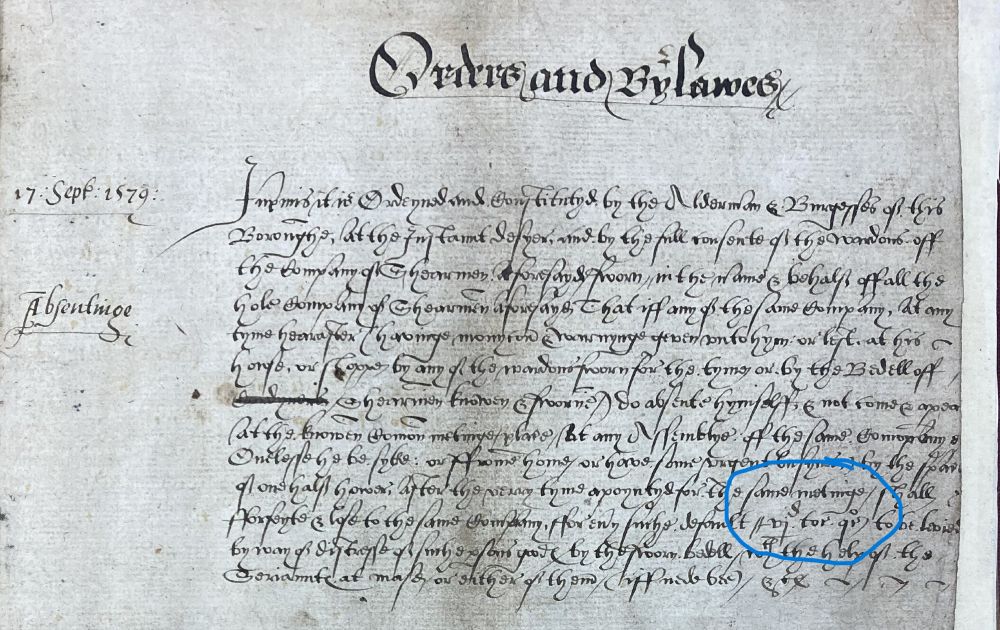 Orders and Bylawes
17: Sept: 1579:
Inprimis it is Ordeyned and Constitutyd by the Alderman & Burgesses of this
Boroughe, at the Instant desyer, and by the full consente of the wardons off
the Company of Shearmen aforesayd sworn, in the name & behalf off all the
Absentinge
hole Company of Shearmen aforesayd That iff any of the same Company, At any
tyme hearafter havinge monycon & warnynge geven unto hym or lest at his
howse, or shoppe by any of the wardons sworn for the tyme, or by the Bedell off
Shearmen knowen & sworne) do absente hymselff, & not come & apear
at the knowen Comon metinge place, At any Assemblye off the same Company
Onelesse he be syke: or ffrome home, or have some urgent busynes by the space
of one half hower, after the verry tyme apoyntyd for the same metinge, shall
fforfeyte & lose to the same Company, ffor every suche default vjd to be levied
by way of distresse of suche psons good by the sworn bedell, wth the help of the
Seriaunts at mase, or either of them (iff nede bee) &c